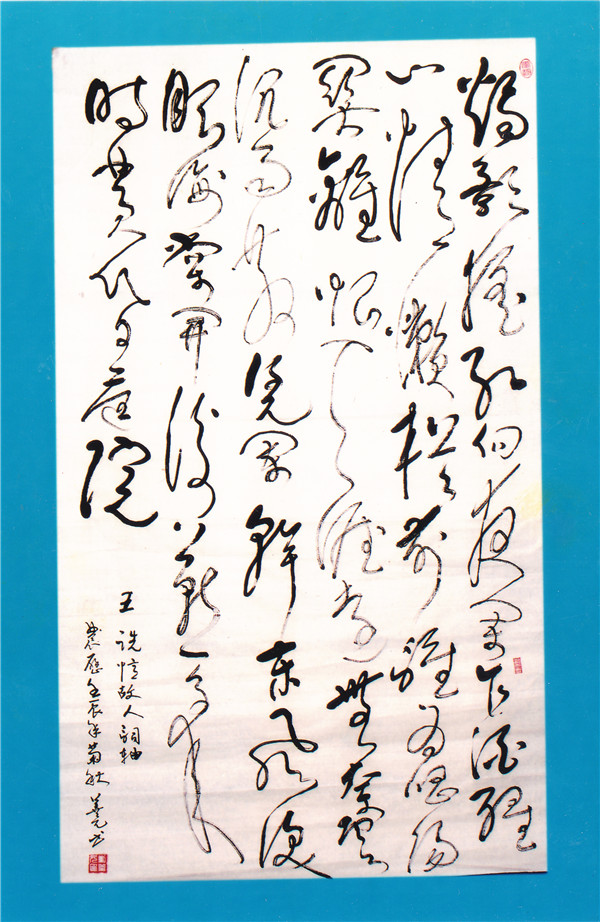 燭影搖紅向夜闌乍酒醒
心情懶樽前誰為唱陽
關離恨天涯遠無奈雲
沉雨散凭闌幹東風淚
眼海棠開後燕子來
時黄昏庭院
王詵憶故人詞軸
農歷壬辰年菊秋 书